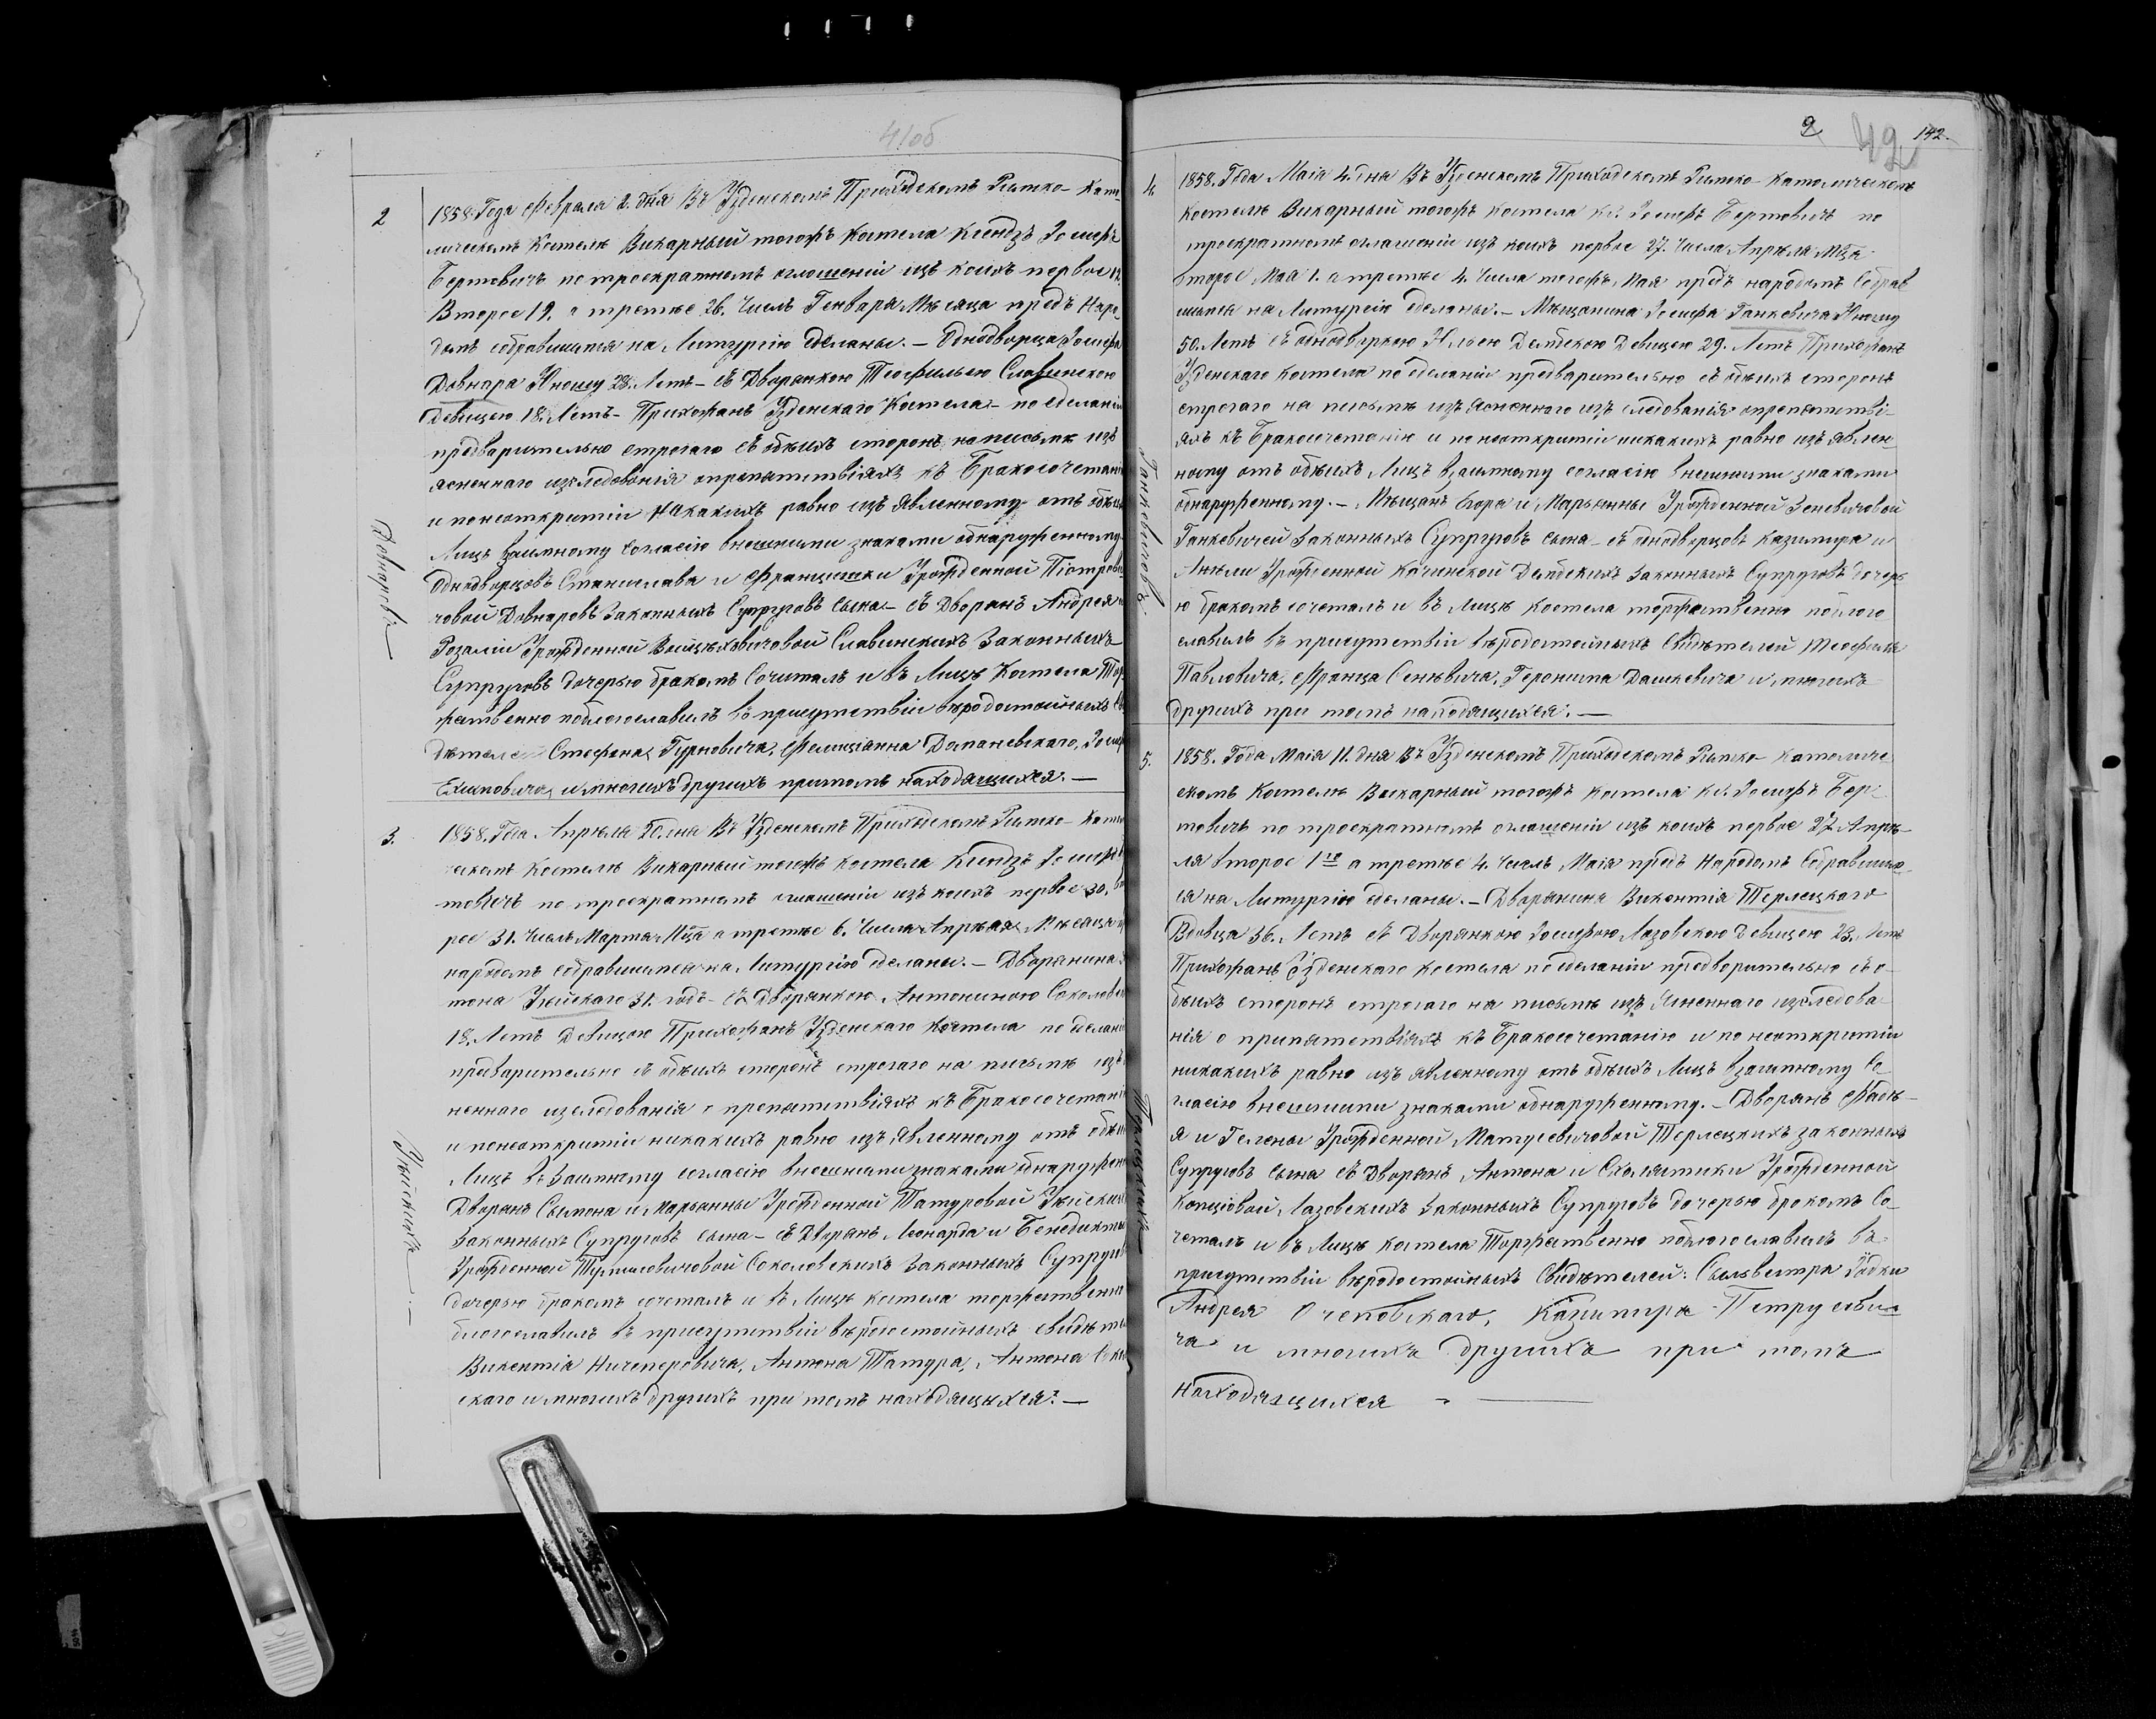 41об
2
1858. Года Февраля 2. дня Въ Узденскомъ Приходскомъ Римско-Като
лическомъ Костелѣ Викарный тогожъ Костела Ксендзъ Іосифъ
Бертовичъ по троекратномъ оглошеніи изъ коихъ первое 12.
Второе 19. а третье 26. Числъ Генваря Мѣсяца предъ Наро
домъ собравшимся на Литургію сдѣланы. – Однодворца Іосифа
Довнара Юношу 28. Летъ – съ Дворянкою Теофилью Славинскою
Девицею 18. Летъ – Прихожанъ Узденскаго Костела – по сделаніи
предварительно строгаго съ обѣихъ сторонъ на письмѣ изъ
ясненнаго изследованія опрепятствіяхъ къ Бракосочетанію
и понеоткрытіи накакихъ равно изъ явленному отъ обѣихъ
Лицъ взаимному согласію внешними знаками обнаруженному
Однодворцовъ Станислава и Францишки Урожденной Піотрови
човой Довнаровъ Законныхъ Супруговъ Сына – съ Дворянъ Андрея и
Розаліи Урожденной Войцѣховичовой Славинскихъ Законныхъ
Супруговъ дочерью бракомъ Сочиталъ и въ Лицѣ Костела Тор
жественно поблогославилъ въ присутствіи вѣродостойныхъ Сви
дѣтелей Стефана Гурновича, Фелиціанна Домановскаго, Іосифа
и многихъ другихъ притомъ находящихся. –
Довнаровъ
3.
1858. Года Апрѣля 20. дня Въ Узденскомъ Приходскомъ Римско-Като
ческомъ Костелѣ Викарный тогожъ Костела Ксендзъ Іосифъ
товичъ по троекратномъ оглашеніи изъ коихъ первое 30.
рое 31. Числъ Марта Мца а третье 6. Числа Апрѣля Мѣсяца
народомъ собравшимся на Литургію сделаны. – Дворянина
мона Уѣйскаго 31. годъ – съ Дворянкою Антониною Соколов
18. Летъ Девицею Прихожанъ Узденскаго Костела по сделаніи
предварительно съ обѣихъ сторонъ строгаго на письмѣ изъ
ненного изследованія о препятствіяхъ къ Бракосочетані
и понеоткрытіи никакихъ равно изъ явленному отъ обѣи
Лицъ въ Заимному согласію внешними знаками обнаружен
Дворянъ Сымона и Марьянны Урожденной Татуровой Уѣйских
Законныхъ Супруговъ сына – съ Дворянъ Леонарда и Бенедикты
Урожденной Соколовскихъ Законныхъ Супругов
дочерью бракомъ сочеталъ и въ Лицѣ Костела торжественно
благославилъ въ присутствіи вѣродостойныхъ свидѣте
Викентія Ничепоровича, Антона Татура, Антона Соко
скаго и многихъ другихъ при томъ находящихся. –
Уѣйскихъ
2 42 142.
4.
1858. Года Маія 4. дня Въ Узденскомъ Приходскомъ Римско-Католическомъ
Костелѣ Викарный тогожъ Костела Кс. Іосифъ Бертовичъ по
троекратномъ оглашеніи изъ коихъ первое 27. Числа Апрѣля Мца
второе Мая 1. а третье 4. Числа тогожъ Мая предъ народомъ Собрав
шимся на Литургію сделаны. – Мѣщанина Іосифа Ганкевича Юношу
50. Летъ съ однодворкою Девицею 29. Летъ Прихожанъ
Узденскаго Костела по сделаніи предварительно съ обѣихъ сторонъ
строгаго на письмѣ изъ ясненного изъ следованія опрепятстві-
яхъ къ Бракосочетанію и по неоткрытіи никакихъ равно изъ явлен-
ному отъ обѣихъ Лицъ взаимному согласію внешними знаками
обнаруженному. – Мѣщанъ и Марьянны Урожденной Зеневичовой
Ганкевичей Законныхъ Супруговъ сына – съ однодворцовъ Казимира и
Анели Урожденной Качинской Законныхъ Супруговъ дочерь
ю бракомъ сочеталъ и въ Лицѣ Костела торжественно поблого
славилъ въ присутствіи вѣродостойныхъ Свидѣтелей Теофила
Павловича, Франца Сенкевича, Геронима Дашкевича и многихъ
другихъ при томъ находящихся. –
Ганкевичовъ
5.
1858. Года Маія 11. дня Въ Узденскомъ Приходскомъ Римско-Католиче
скомъ Костелѣ Викарный тогожъ Костела Кс. Іосифъ Бер-
товичъ по троекратномъ оглашеніи изъ коихъ первое 27 Апрѣ-
ля второе 1го а третье 4. Числъ Маія предъ Народомъ Собравшим
ся на Литургію сделаны. – Дворянина Викентія Терлецкого
Вдовца 36. Летъ съ Дворянкою Іосифою Лазовскою девицею 23. Летъ
Прихожанъ Узденскаго Костела по сделаніи предворительно съ о-
бѣихъ сторонъ строгаго на письмѣ изъ ясненнаго изследова-
нія о припятствіяхъ къ Бракосочетанію и по неоткрытіи
никакихъ равно изъ явленному отъ обѣихъ Лицъ взаимному со-
гласію внешними знаками обнаруженному. – Дворянъ Фадѣ-
я и Гелены Урожденной Матусевичовой Терлецкихъ законныхъ
Супруговъ сына съ Дворянъ Антона и Схолястики Урожденной
Лазовскихъ Законныхъ Супруговъ дочерью бракомъ Со-
четалъ и въ Лицѣ Костела Торжественно поблогославилъ въ
присутствіи вѣродостойныхъ Свидѣтелей: Сыльвестра
Андрея Казимира Петрусеви-
ча и многихъ другихъ при томъ
находящихся –
Терлецкихъ